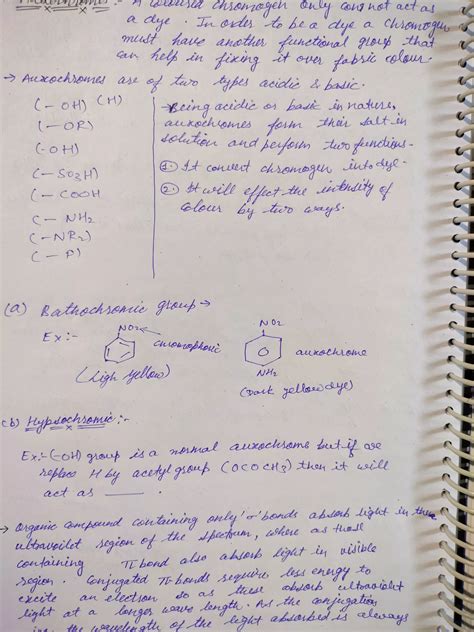 Auxochromes :- A coloured chromogen only can not act as
a dye. In order to be a dye a chromogen
must have another functional group that
can help in fixing it over fabric colour.
→ Auxochromes are of two types acidic & basic.
(-OH) (H)
(-OR)
(-OH)
(-SO3H)
(-COOH
(-NH2
(-NR2)
(-
→ Being acidic or basic in nature,
auxochromes form their salt in
solution and perform two functions-
1. It convert chromogen into dye-
2. It will effect the intensity of
colour by two ways.
(a) Bathochromic group →
Ex:-
NO2
chromophoric
(Ligh yellow)
NO2
NH2
auxochrome
(Dark yellow dye)
(b) Hypsochromic :-
Ex:- (-OH) group is a normal auxochroms but if we
replace H by acetyl group (OCOCH3) then it will
act as ___ .
→ Organic compound containing only 'σ' bonds absorb light in the
ultravoilet region of the spectrum, where as those
containing π bond also absorb light in visible
region. Conjugated π bonds require less energy to
excite an electron so as these absorb ultravoilet
light at a longer wave length. As the conjugation
the wavelength of the light absorbed is always